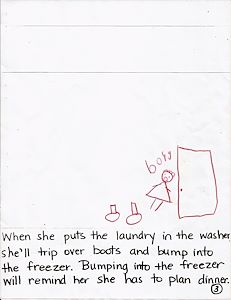 When she puts the laundry in the washer
she'll trip over boots and bump into
the freezer. Bumping into the freezer
will remind her she has to plan dinner.
3